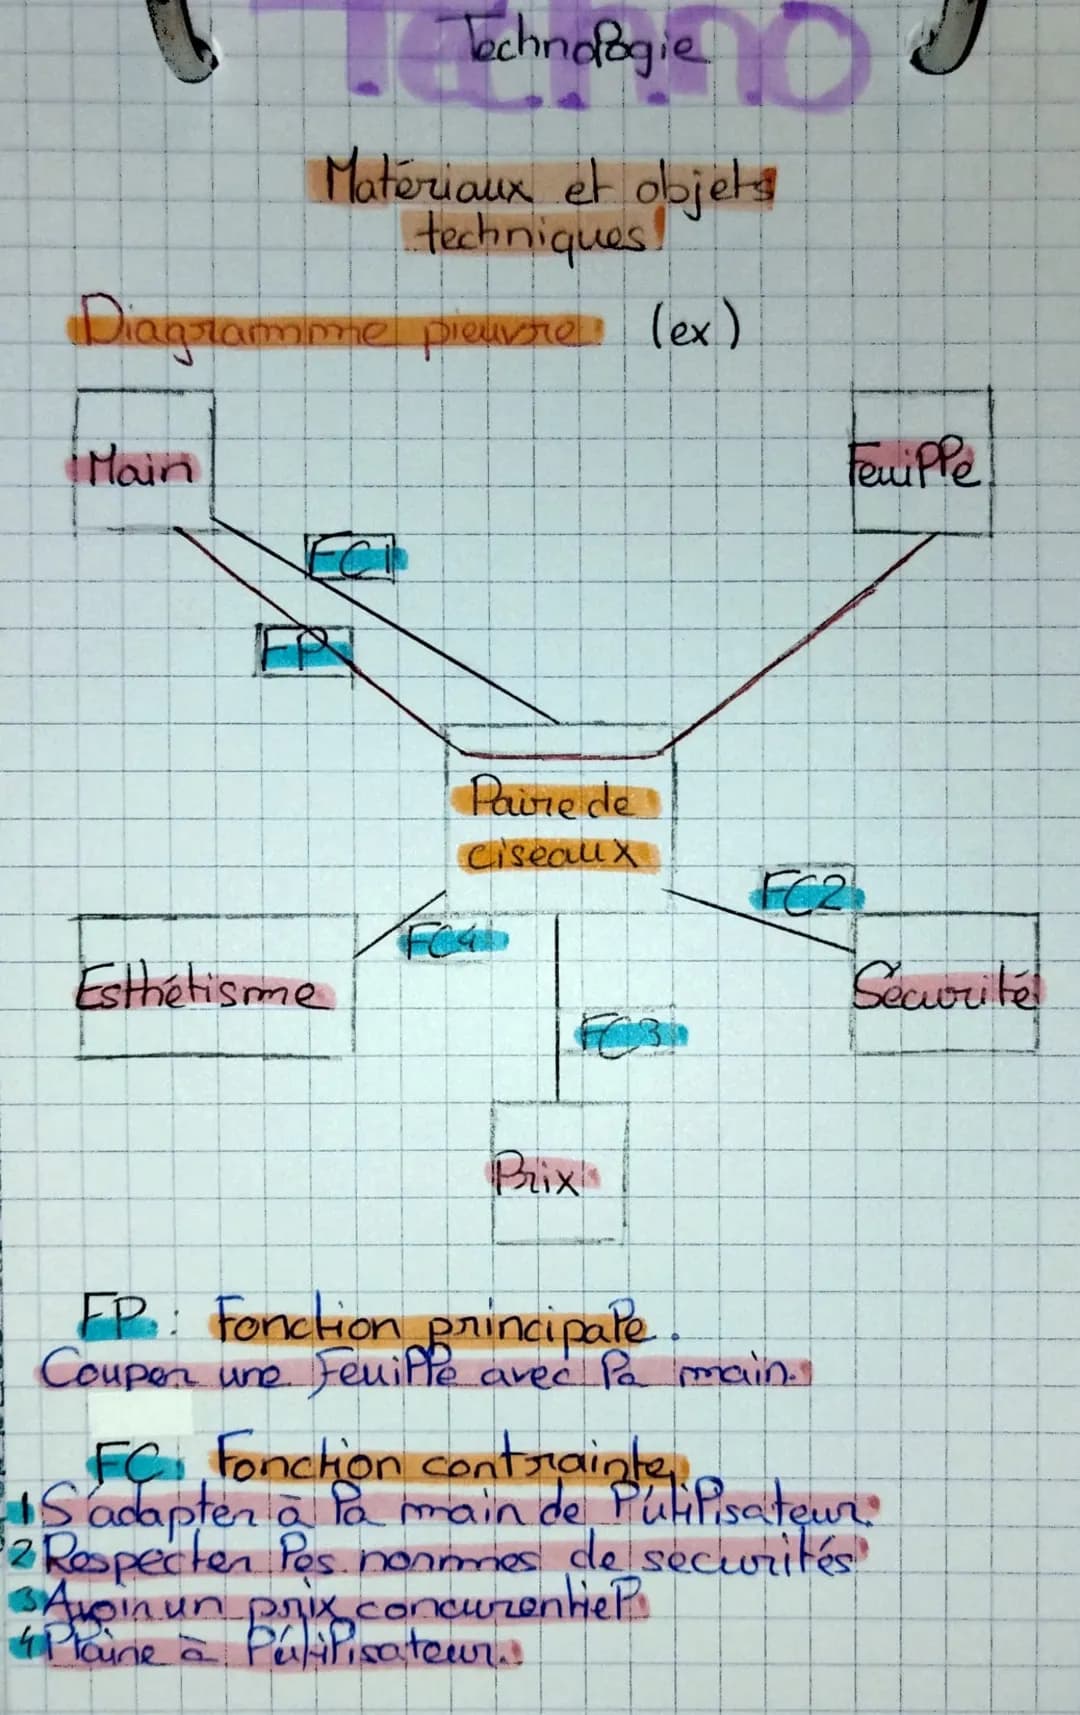 Techno
Technologie
Matériaux et objets
techniques
Diagramme pieuvre (ex)
Main
Feuille
FC1
FP
Paire de
ciseaux
FC2
FC4
Esthétisme
Sécurité
FC3
Prix
FP : Fonction principale.
Couper une Feuille avec la main.
FC: Fonction contrainte
1 S'adapter à la main de l'utilisateur.
2 Respecter les normes de sécurités
3 Avoir un prix concurentiel.
4 Plaire à l'utilisateur.